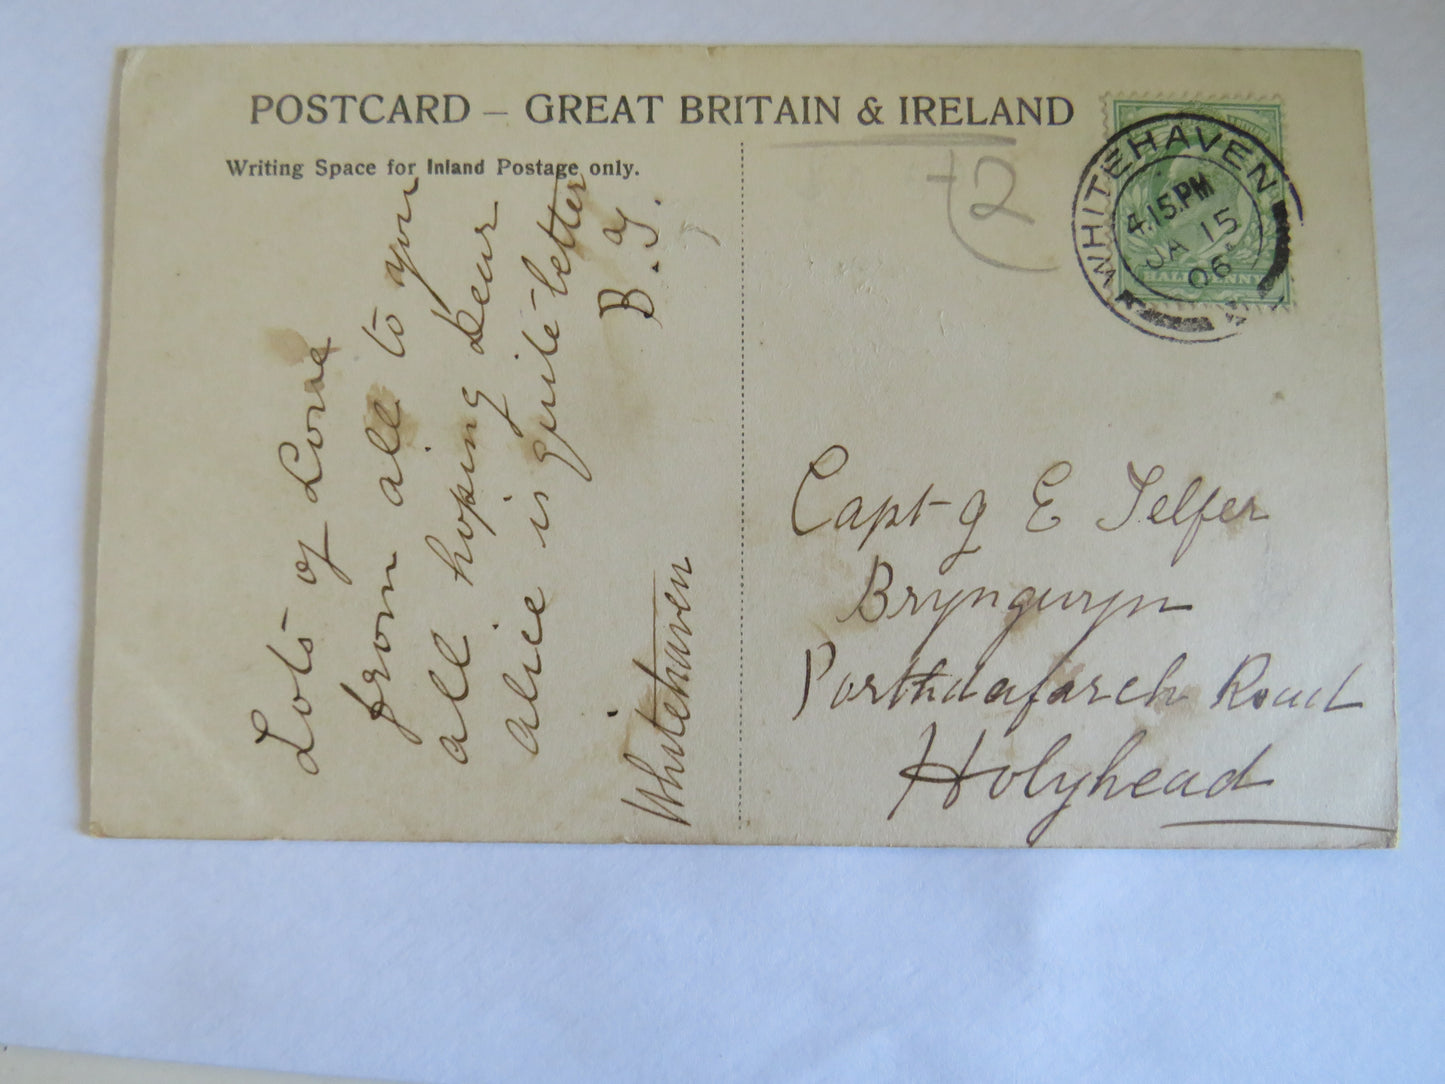 POSTCARD – GREAT BRITAIN & IRELAND
Writing Space for Inland Postage only.
Lots of Love
from all to you
all hoping dear
alice is quite better
B.J.
Whitehaven
12
WHITEHAVEN
4.15.PM
JA 15
06
HALFPENNY
Capt- g E Telfer
Bryngwyn
Porthdafarch Road
Holyhead